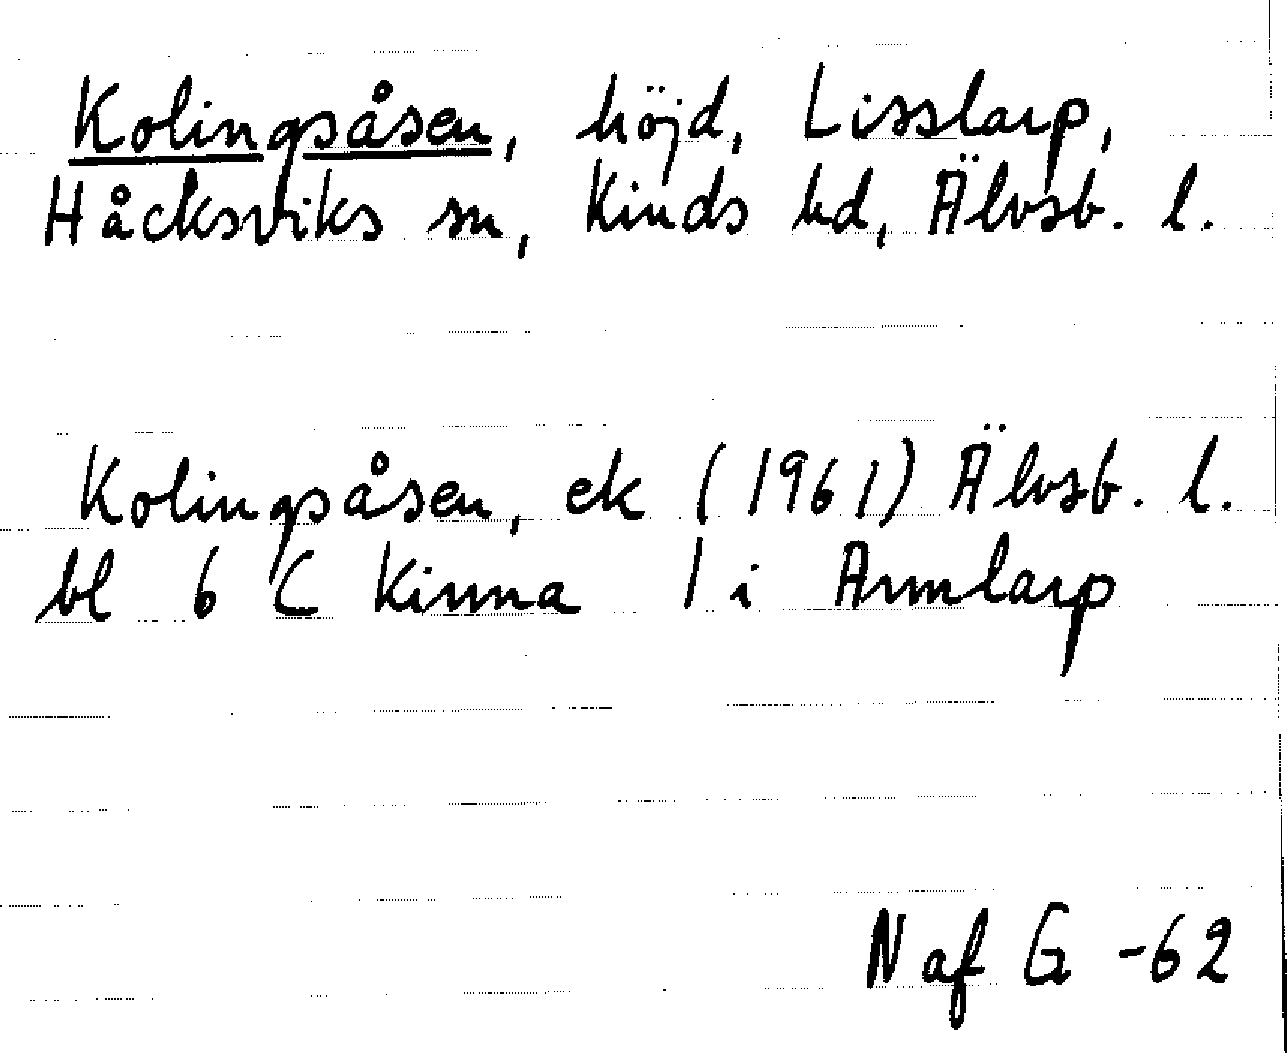 Kolingsåsen, höjd, Lisslarp,
Håcksviks sn, Kinds hd, Älvsb. l.
Kolingsåsen, ek (1961) Älvsb. l.
bl 6 C Kinna 1 i Armlarp
N af G -62